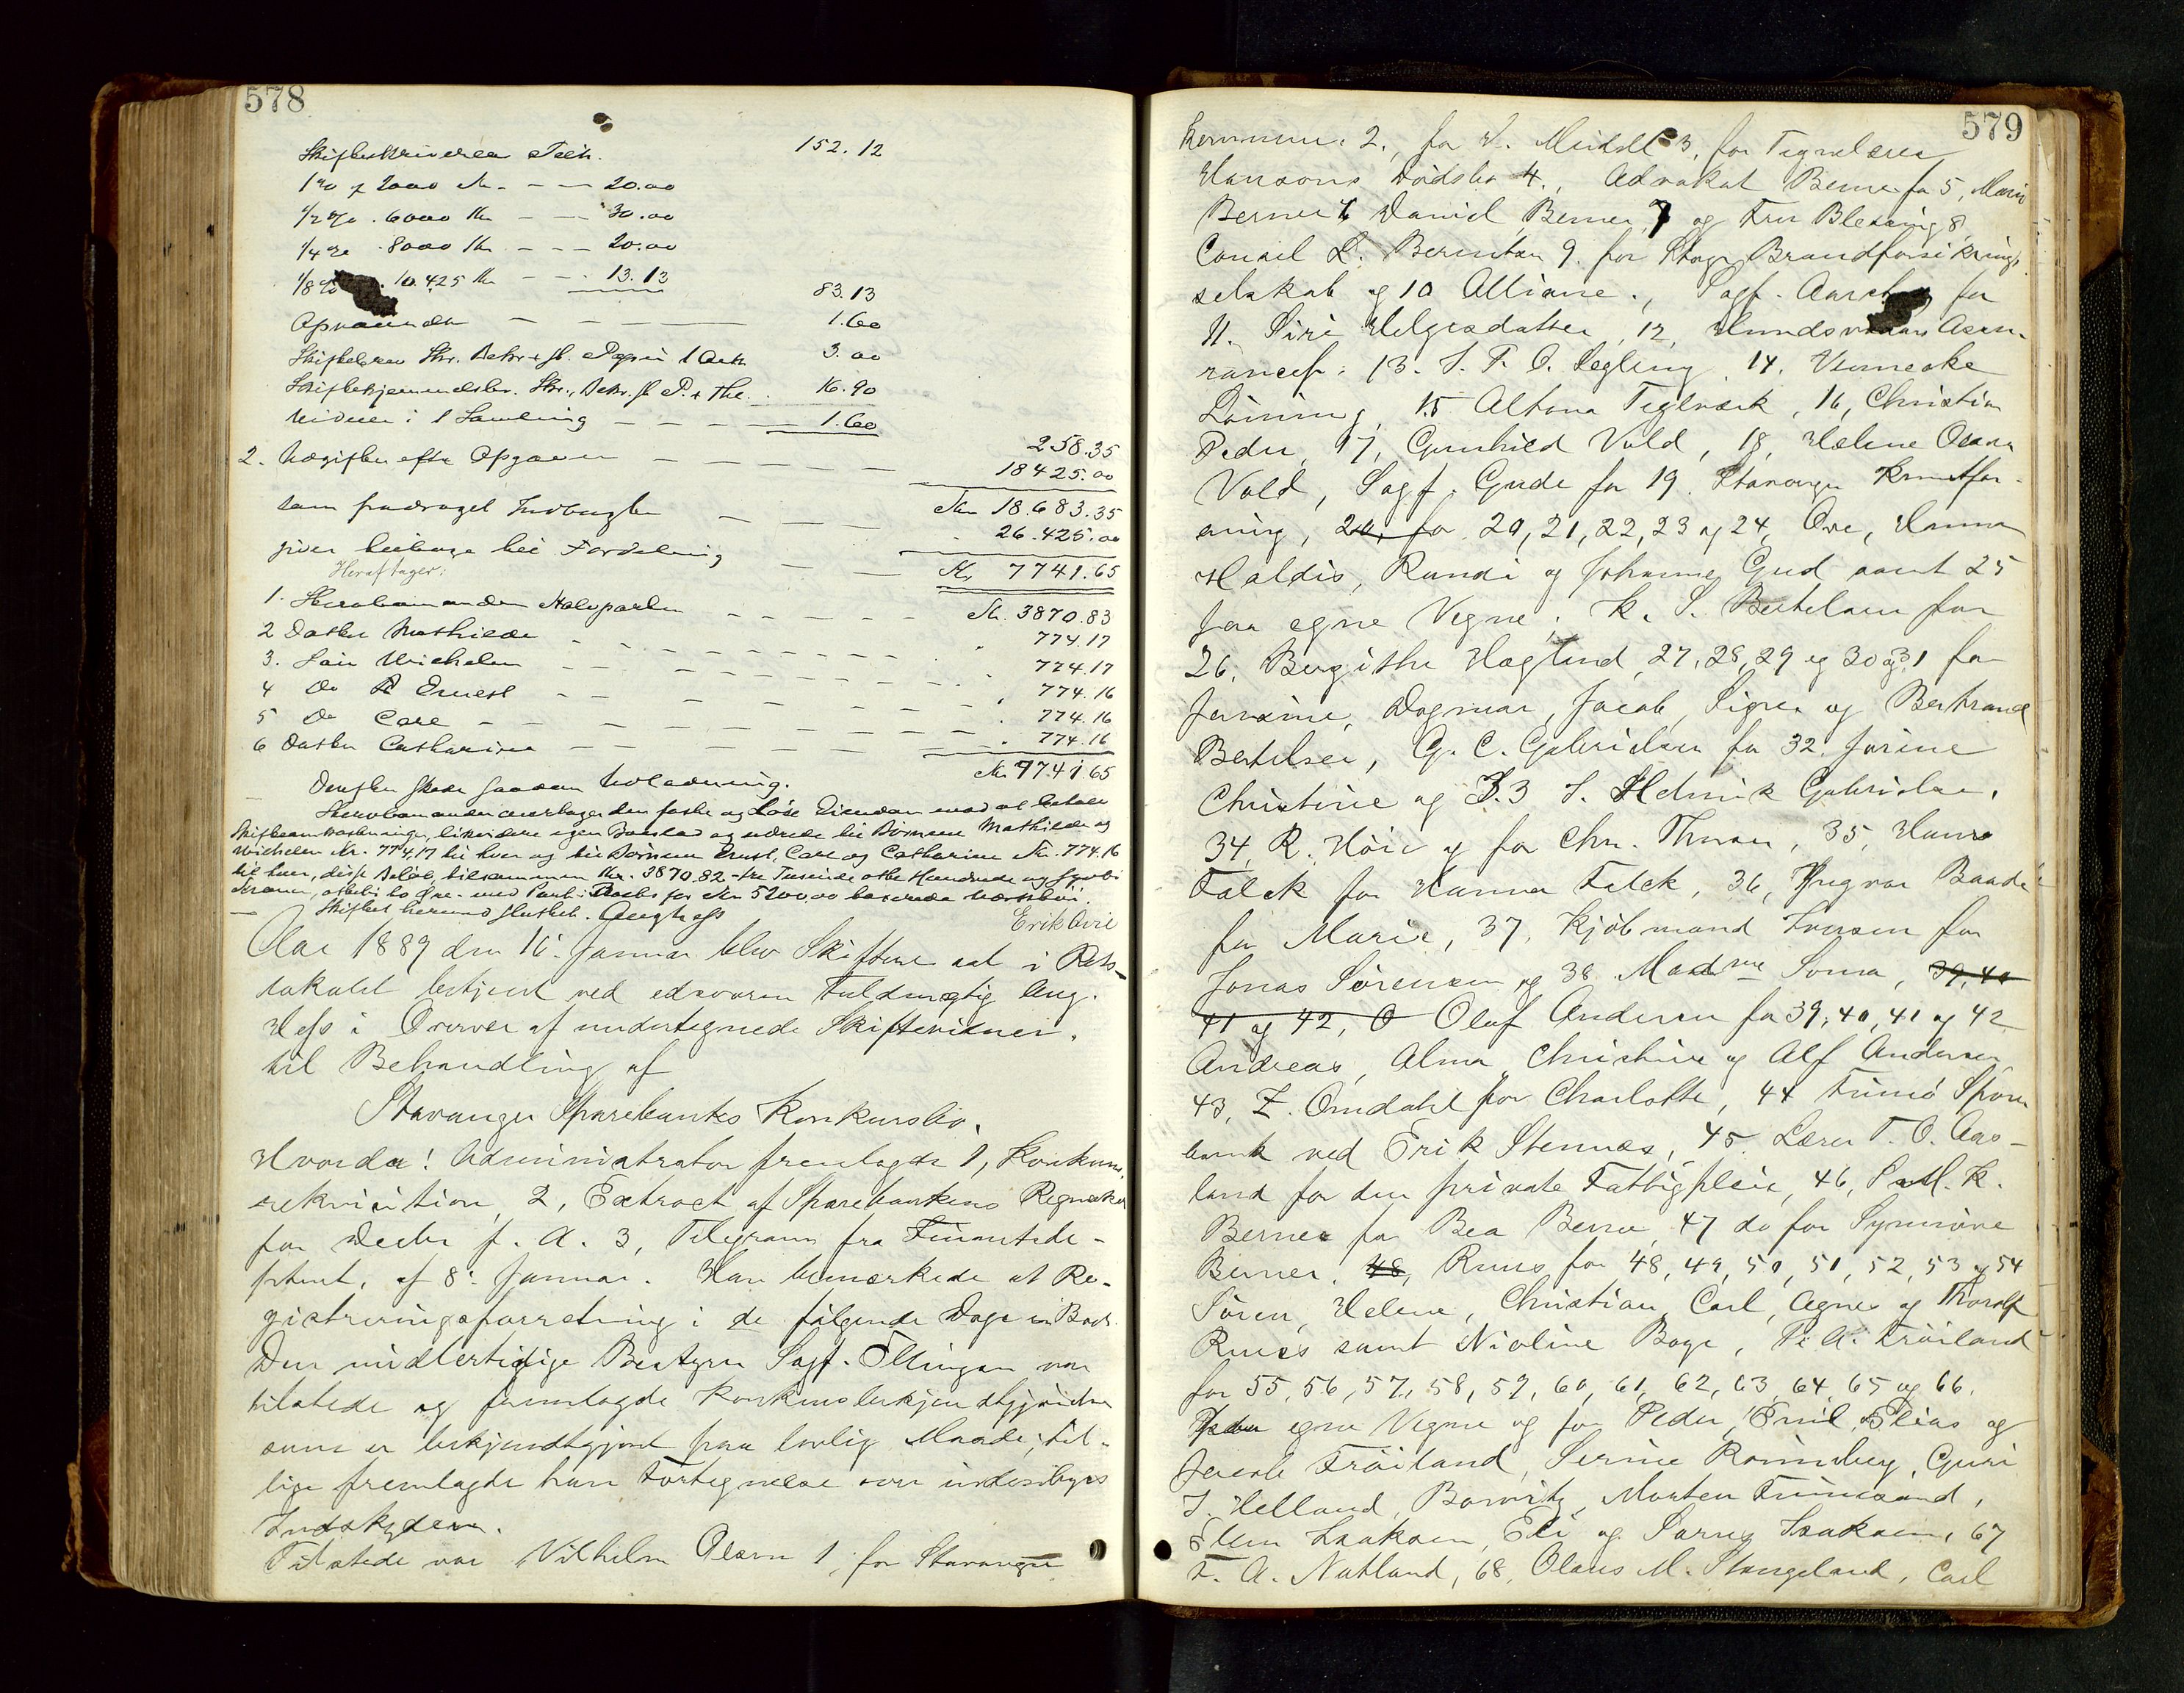 578
152.12
1% af 2000 Kr. - - - 20.00
1/2 % . 6000 Kr - - - 30.00
1/4 % . 8000 Kr. - - - 20.00
1/8 % . 10.425 Kr - - - 13.13
83.13
1.60
3.00
16.90
Vidner i 1 Samling - - - - - 1.60
258.35
2. Udgifter efter Opgaven - - - - - 18425.00
Kr 18.683.35
som fradraget Indtægten - - - 26.425.00
giver tilbage til Fordeling - - - Kr. 7741.65
Heraf tager:
1. Halvparten - - - - - Kr. 3870.83
2 Datter Mathilde - - - - - 774.17
3. Søn Wilhelm - - - - - 774.17
4 Do Ernest - - - - - 774.16
5 Do Carl - - - - - 774.16
6 Datter Catharine - - - - - 774.16
Kr. 7741.65
Derefter skede saadan Udlodning.
overtager den faste og Løse Eiendom mod at betale
likvidere egen og udrede til Børnene Mathilde og
Wilhelm Kr. 774,17 til hver og til Børnene Ernst, Carl og Catharine Kr. 774.16
til hver, disse Beløb, tilsammen Kr. 3870.82 - tre Tusinde otte Hundrede og sytti
Kroner, otteti to Øre - mod Pant i for Kr 5200,00
Skiftet hermed sluttet. Aug Hess
Erik Avie
Aar 1889 den 16. Januar blev Skifteret sat i Rets-
lokalet betjent ved edsvoren Fuldmægtig Aug.
Hess i Overvær af undertegnede Skiftevidner.
til Behandling af
Stavanger Sparebanks Konkursbo.
Hvorda! Administrator fremlagde 1, Konkurs
rekvisition, 2, Extract af Sparebankens Regnskab
for Decbr f. A. 3, Telegram fra Finantsde-
ptmt. af 8. Januar. Han bemærkede at Re-
gistreringsforretning i de følgende Dage i Boet.
Den midlertidige Bestyrer Sagf. Ellingsen var
tilstede og fremlagde Konkursbekjendtgjørelse
som er bekjendtgjort paa lovlig Maade; til-
lige fremlagde han Fortegnelse over indenbyes
Indskydere.
Tilstede var Vilhelm Olsen 1, for Stavanger
579
Kommune. 2., for V. Meidell 3. for Tegnelærer
Hansens Dødsbo 4., Advokat Berner for 5, Marie
Berner 6 David Berner, 7 og Fru Blessing 8,
Consul L. Berentsen 9. for Stavgr. Brandforsikrings
selskab og 10 Alliance., Sagf. for
11. Siri Helgesdatter, 12, Assu-
rancef. 13. S. T. O. Segling. 14. Vernecke
Løining, 15 Altona Teglværk, 16, Christian
Peder, 17, Gunhild Vold, 18, Helene Oleana
Vold, Sagf. Gude for 19. Stavanger Kunstfor-
ening, 20, for 20, 21, 22, 23 og 24, Ove, Hanna
Haldis, Randi og Johanne Gud samt 25
for egne Vegne. K. S. Bertelsen for
26, Bergithe Haglund 27, 28, 29 og 30 og 31 for
Jensine, Dagmar, Jacob, Signe og Bertrand
Bertelsen, G. C. Gabrielsen for 32. Jorine
Christine og 33 S. Helmik Gabrielsen.
34, R. Höie og for Chr. Thorsen, 35, Hanne
Falck for Hanna Falck, 36, Yngvar Baade
for Marie, 37, Kjøbmand Iversen for
Jonas Sørensen og 38 Madme Soma, 39, 40
41 og 42, O Oluf Andersen for 39, 40, 41 og 42
Andreas, Alma Christine og Alf Andersen,
43, Z. Omdahl for Charlotte, 44 Finnø Spare
bank ved Erik Stennæs, 45 Lærer T. O. Aas-
land for den private Fattigpleie, 46, P. M. K.
Berner for Bea Berner, 47 do for Synnøve
Berner. 48, Ruus for 48, 49, 50, 51, 52, 53 og 54
Søren, Helene, Christian, Carl, Agnes og Thoralf
Ruus samt Nicoline Bøge, P. A. Frøiland
for 55, 56, 57, 58, 59, 60, 61, 62, 63, 64, 65 og 66.
egne Vegne og for Peder, Emil, Elias og
Jacob Frøiland, Serine Rønneberg, Guri
J. Helland, Borwitz, Morten Finnesand,
Ellen Isaksen, Eli og Isaksen, 67
T. A. Natland, 68, Olaus M. Stangeland, Carl